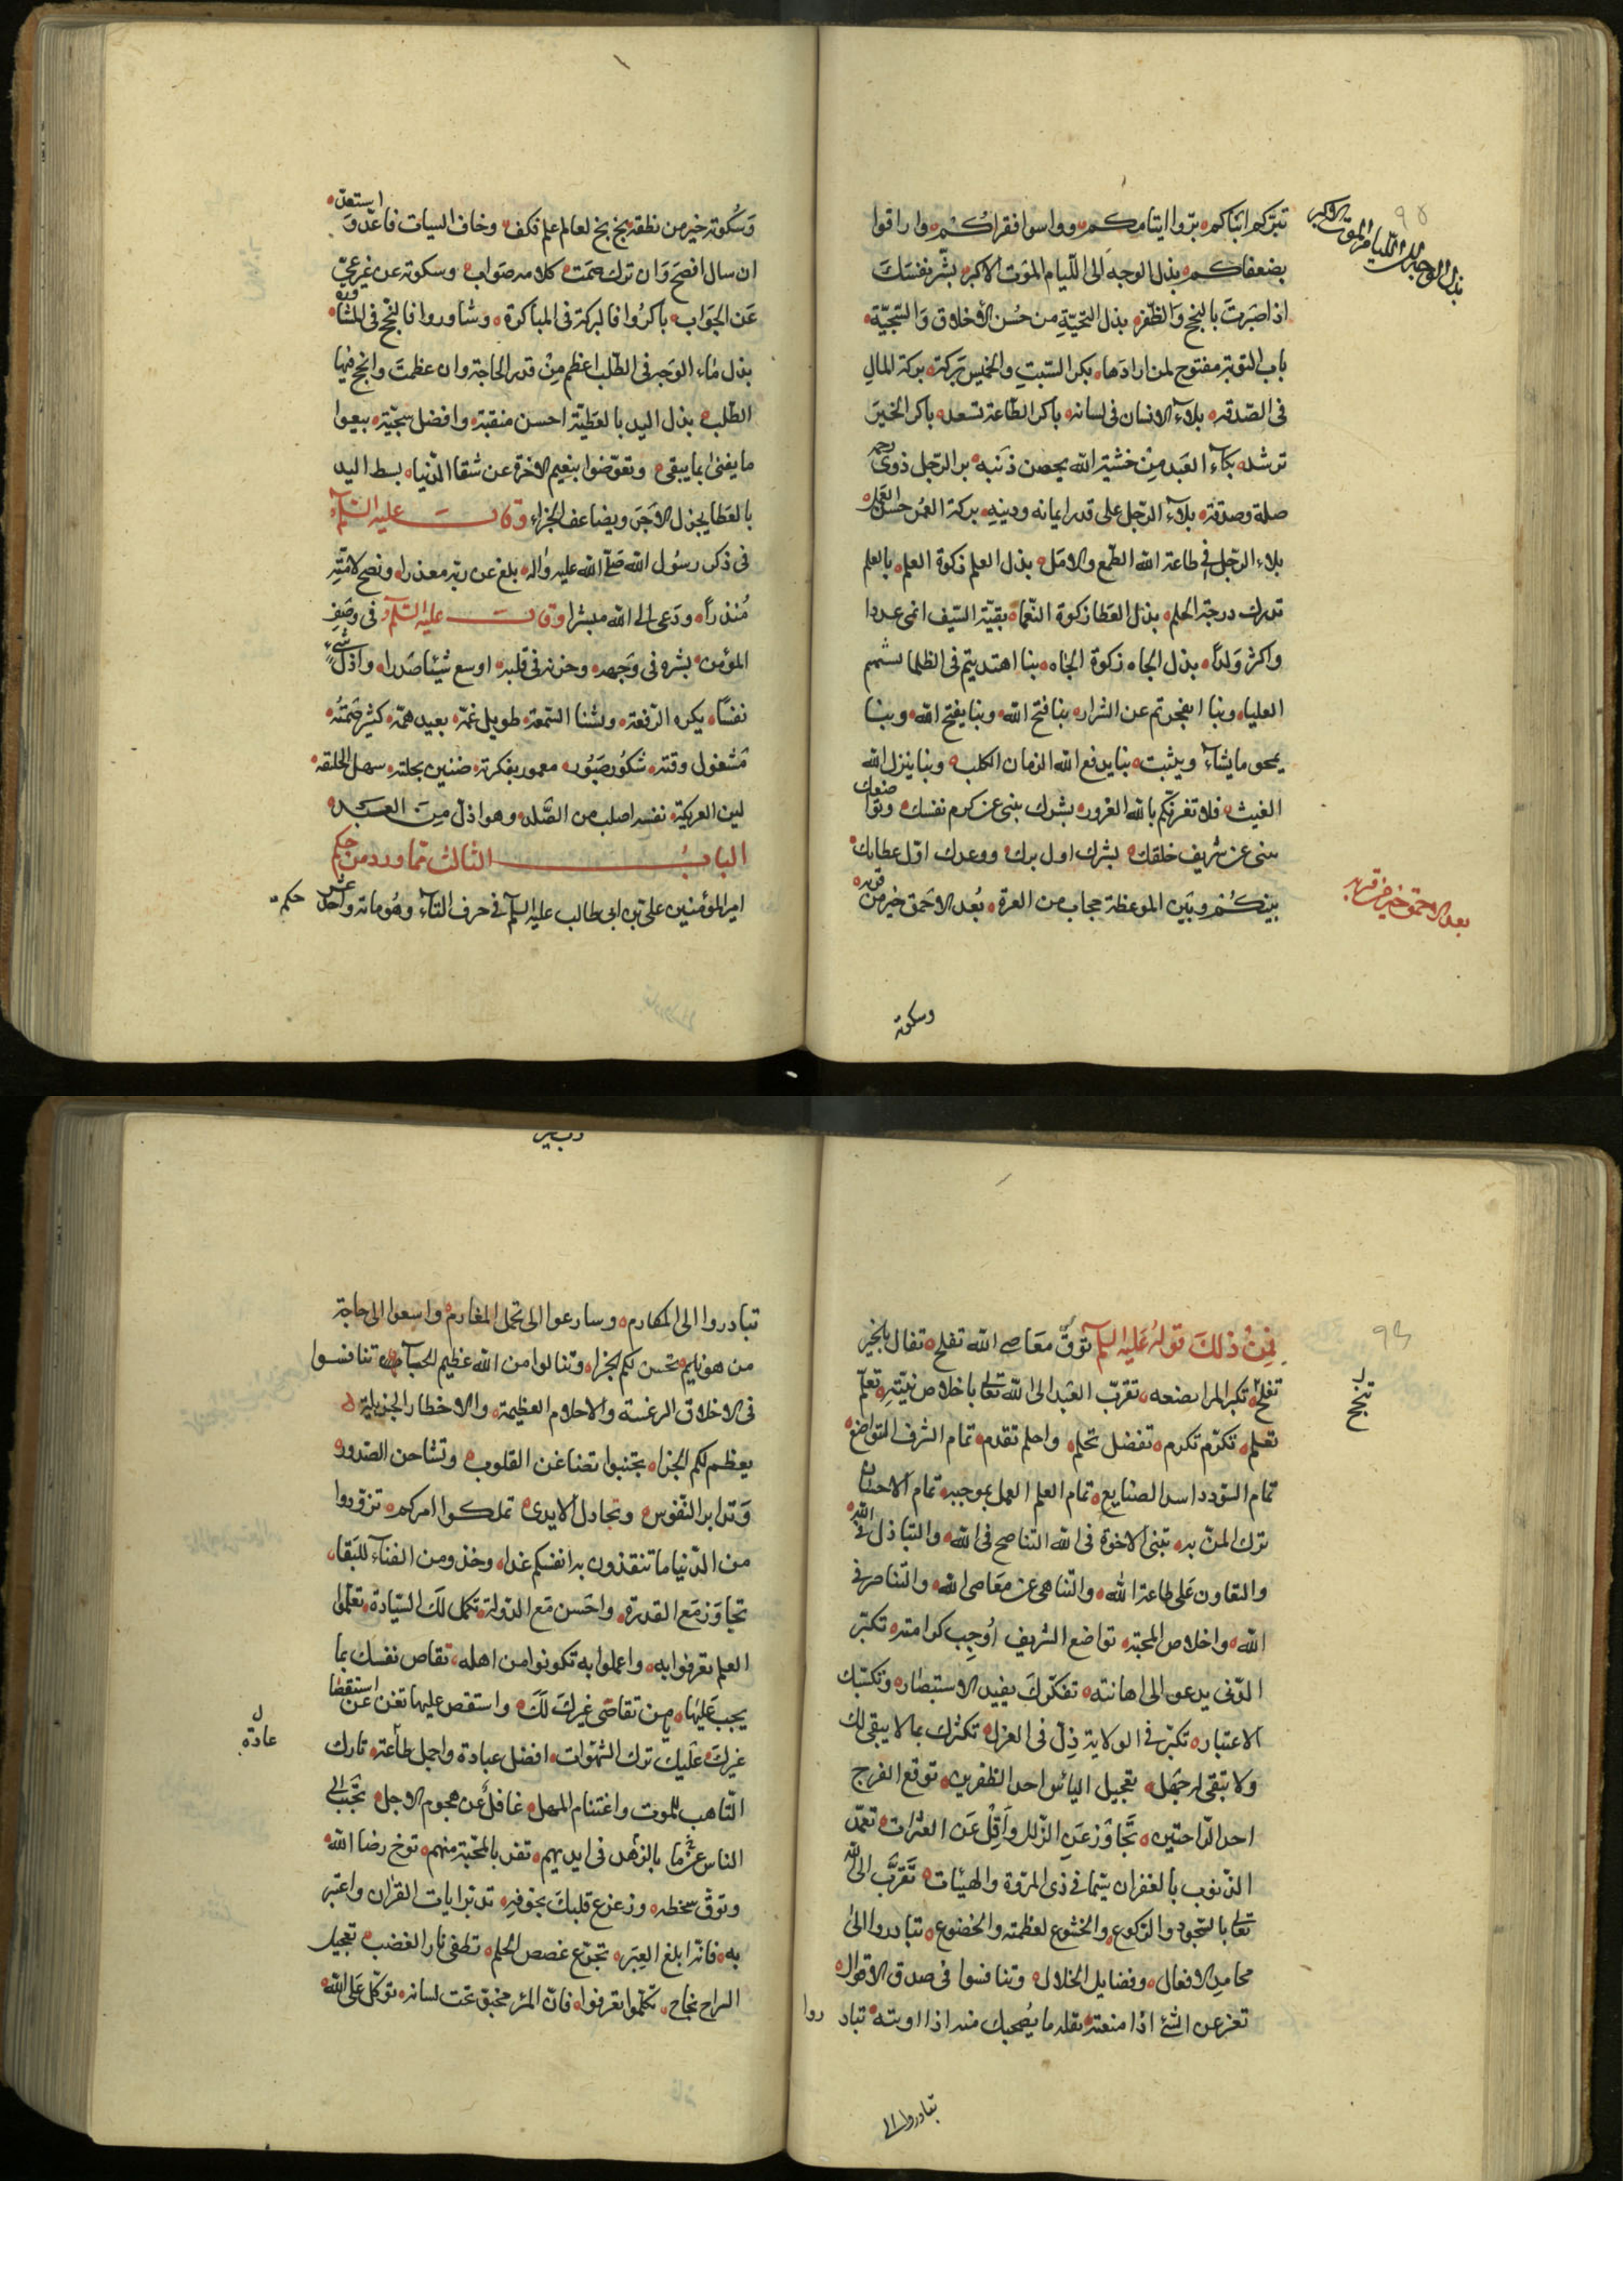 تبركم ابناكم بروا ايتامكم وواسوا فقراكم وارافوا
بضعفاكم بذل الوجه الى اللئيام الموت الاكبر بشر نفسك
اذا صبرت بالنجح والظفر بذل التحية من حسن الاخلاق والسجية
باب التوبة مفتوح لمن ارادها بكر السبت والخميس بركة بركة المال
فى الصدقه بلاء الانسان فى لسانه باكر الطاعة تسعد باكر الخير
ترشد بكاء العبد من خشية الله يمحص ذنبه بر الرجل ذوى رحمه
صلة وصدقة بلاء الرجل على قدر ايمانه ودينه بركة العمر حسن العمل
بلاء الرجل فى طاعة الله الطمع والامل بذل العلم زكوة العلم بالعلم
تدرك درجة الحلم بذل العطا زكوة النعماء بقية السيف انمى عددا
واكثر ولدا بذل الجاه زكوة الجاه بنا اهتديتم فى الظلما تسنمتم
العلياء وبنا انفجرتم عن الشرار بنا فتح الله وبنا يفتح الله وبنا
يمحو ما يشاء ويثبت بنا يدفع الله الزمان الكلب وبنا ينزل الله
الغيث فلا تغرنكم بالله الغرور بشرك ينبى عن كرم نفسك وتواضعك
ينبى عن شريف خلقك بشرك اول برك ووعدك اول عطايك
بينكم وبين الموعظة حجاب من الغرة بعد الاحمق خير من قربه
وسكوته
بذل الوجه الى اللئيام الموت الاكبر
٩٥
بعد الاحمق خير من قربه
وسكوته خير من نطقه بخ بخ لعالم علم فكف وخاف البيات فاعد و استعد
ان سال افصح وان ترك صمت كلامه صواب وسكوته عن غير عى
عن الجواب باكروا فالبركة فى المباكرة وشاوروا فالنجح فى المشاورة
بذل ماء الوجه فى الطلب اعظم من قدر الحاجة وان عظمت وانجح فيها
الطلب بذل اليد بالعطية احسن منقبة وافضل سجية بيعوا
ما يفنى بما يبقى وتعوضوا بنعيم الاخرة عن شقا الدنيا بسط اليد
بالعطا يجزل الاجر ويضاعف الجزاء وقال عليه السلام
فى ذكر رسول الله صلى الله عليه واله بلغ عن ربه معذرا ونصح لامته
منذرا ودعى الى الله مبشرا وقال عليه السلام فى وصف
المؤمن بشره فى وجهه وحزنه فى قلبه اوسع شيئا صدرا واذل شيء
نفسا يكره الرفعة ويشنا السمعة طويل غمه بعيد همه كثير صمته
مشغول وقته شكور صبور مغمور بفكرته ضنين بخلته سهل الخلقه
لين العريكة نفسه اصلب من الصلد وهو اذل من العبد
الباب الثالث مما ورد من حكم
امير المؤمنين على بن ابى طالب عليه السلم فى حرف التاء وهو ماته واحد عشر حكمه
فمن ذلك قوله عليه السلم توق معاصى الله تفلح تفال بالخير
تفلح تكبر المرا يضعه تقرب العبد الى الله تعالى باخلاص نيته تعلم
تعلم تكرم تكرم تفضل تحلم واحلم تقدم تمام الشرف التواضع
تمام السؤدد اسدا الصنايع تمام العلم العمل بموجبه تمام الاحسان
ترك المن به تبنى الاخوة فى الله التناصح فى الله والتباذل فى الله
والتعاون على طاعة الله والتناهى عن معاصى الله والتناصر فى
الله واخلاص المحبة تواضع الشريف اوجب كرامته تكبر
الدنى يدعو الى اهانته تفكرك يفيد الاستبصار وتكسبك
الاعتبار تكبر فى الولاية ذل فى العزل تكثرك بما لا يبقى لك
ولا تبقى له جهل تعجيل الياس احد الظفرين توقع الفرج
احد الراحتين تجاوز عن الزلل واقل عن العثرات تغمد
الذنوب بالغفران سيما فى ذى المروة والهيئات تقرب الى الله
تعالى بالسجود والركوع والخشوع لعظمته والخضوع تبادروا الى
محامد الافعال وفضايل الخلال وتنافسوا فى صدق الاقوال
تعز عن الشئ اذا منعته بقلة ما يصحبك منه اذا اوتيته تبادروا
تبادروا الى
٩٦
تنجح
تبادروا الى المكارم وسارعوا الى تحمل المغارم واسعوا الى حاجة
من هو نايم تحسن لكم الجزاء وتنالوا من الله عظيم الحباء تنافسوا
فى الاخلاق الرغيبة والاحلام العظيمة والاخطار الجزيلة
يعظم لكم الجزاء تجنبوا تضاغن القلوب وتشاحن الصدور
وتدابر النفوس وتخاذل الايدى تملكوا امركم تزودوا
من الدنيا ما تنقذون به انفسكم غدا وخذوا من الفناء للبقاء
تجاوز مع القدرة واحسن مع الدولة تكمل لك السيادة تعلموا
العلم تعرفوا به واعملوا به تكونوا من اهله تقاص نفسك بما
يجب عليها من تقاضى غيرك لك واستقص عليها تغن عن استقصا
غيرك عليك ترك الشهوات افضل عبادة واجمل طاعة تارك
التاهب للموت واغتنام المهل غافل عن هجوم الاجل تحبب الى
الناس بالزهد فى ايديهم تفز بالمحبة منهم توخ رضا الله
وتوق سخطه وزعزع قلبك بخوفه تدبر ايات القران واعتبر
به فانه ابلغ العبر تجرع غصص الحلم تطفى نار الغضب تعجيل
السراح نجاح تكلموا تعرفوا فان المرء مخبو تحت لسانه توكل على الله
عادة